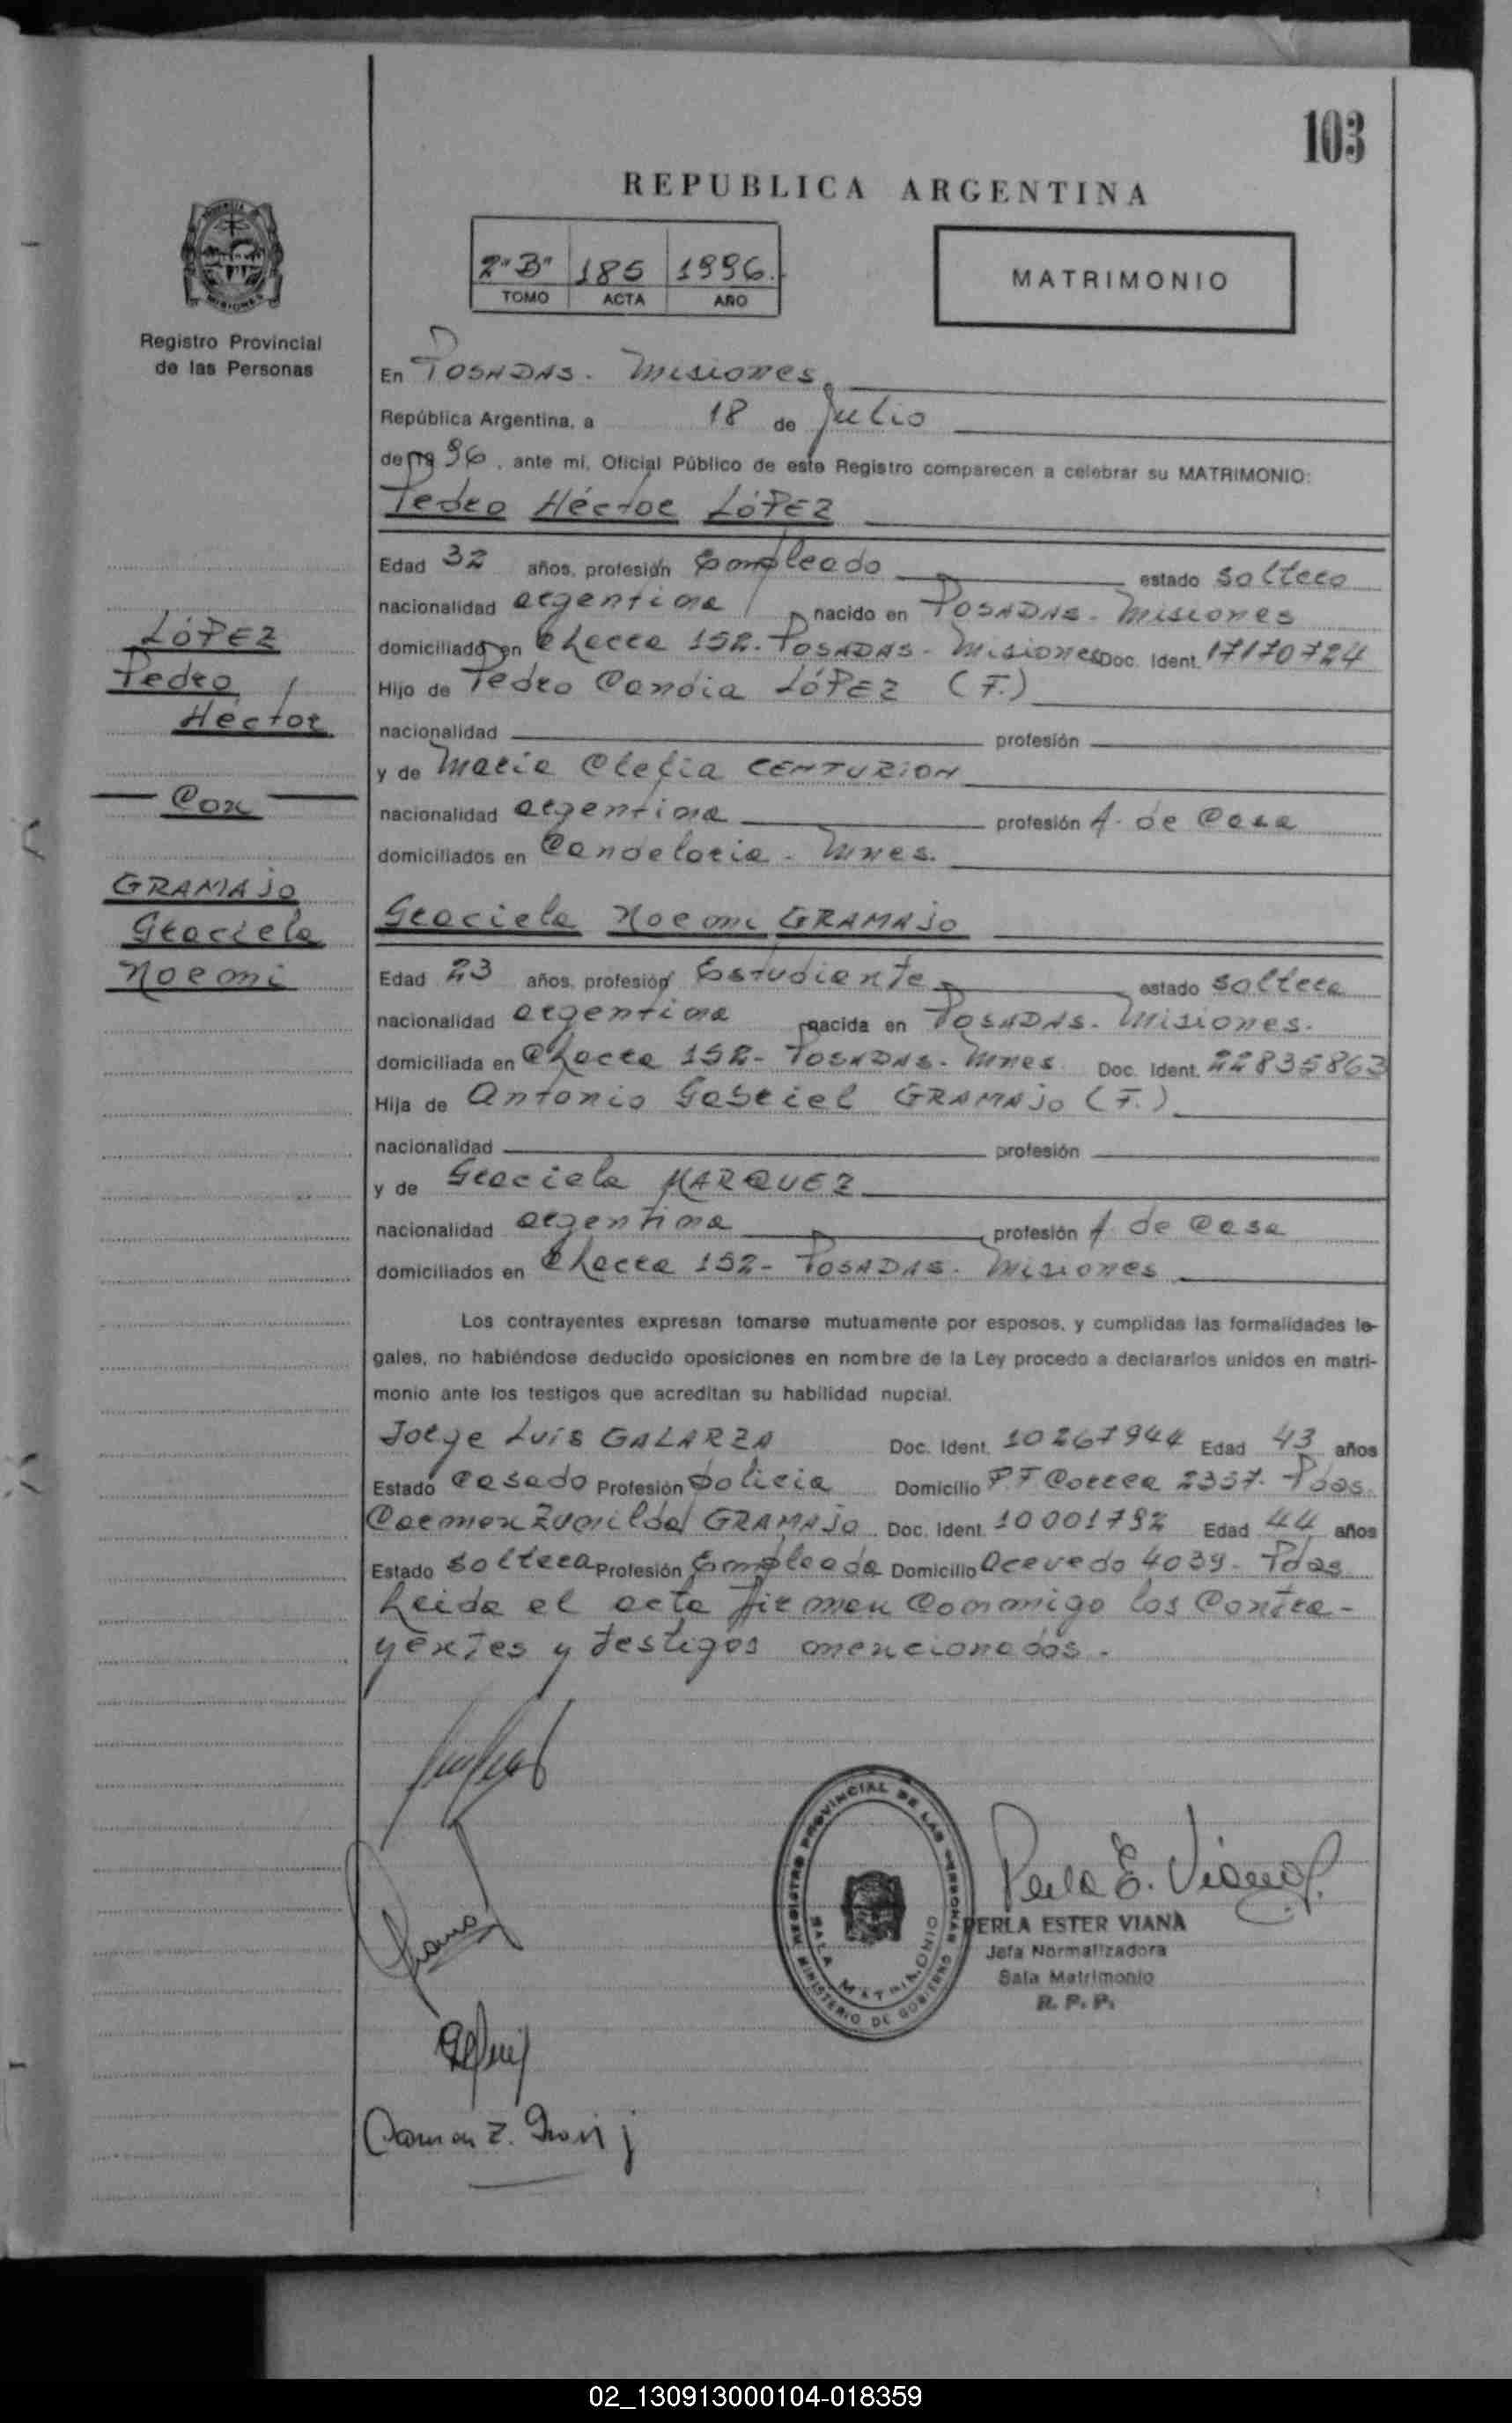 103
REPUBLICA ARGENTINA
2"B" 185 1996.
TOMO ACTA AÑO
MATRIMONIO
Registro Provincial
de las Personas
En POSADAS. Misiones
República Argentina, a 18 de Julio
de 19 96, ante mi, Oficial Público de este Registro comparecen a celebrar su MATRIMONIO:
Pedro Héctor LÓPEZ
Edad 32 años, profesión Empleado estado soltero
nacionalidad argentina nacido en POSADAS. Misiones
domiciliado en Chacra 152. POSADAS - Misiones Doc. Ident. 17170724
Hijo de Pedro Candia LÓPEZ (F.)
nacionalidad profesión
y de María Clelia CENTURION
nacionalidad argentina profesión A. de Casa
domiciliados en Candelaria - Mnes.
LÓPEZ
Pedro
Héctor
Con
GRAMAJO
Graciela
Noemi
Graciela Noemi GRAMAJO
Edad 23 años, profesión Estudiante estado soltera
nacionalidad argentina nacida en POSADAS. Misiones.
domiciliada en Chacra 152- POSADAS- Mnes Doc. Ident. 22835863
Hija de Antonio Gabriel GRAMAJO (F.)
nacionalidad profesión
y de Graciela MARQUEZ
nacionalidad argentina profesión A. de Casa
domiciliados en Chacra 152- POSADAS- Misiones
Los contrayentes expresan tomarse mutuamente por esposos, y cumplidas las formalidades le-
gales, no habiéndose deducido oposiciones en nombre de la Ley procedo a declararlos unidos en matri-
monio ante los testigos que acreditan su habilidad nupcial.
Jorge Luis GALARZA Doc. Ident. 10267944 Edad 43 años
Estado Casado Profesión policia Domicilio P.F Correa 2337. Pdas.
Carmen Zunilda GRAMAJO Doc. Ident. 10001792 Edad 44 años
Estado soltera Profesión Empleada Domicilio Acevedo 4039- Pdas
Leida el acta firman Conmigo los Contra-
yentes y testigos mencionados.
REGISTRO PROVINCIAL DE LAS PERSONAS
SALA MATRIMONIO
MINISTERIO DE GOBIERNO
Perla E. Viana
PERLA ESTER VIANA
Jefa Normalizadora
Sala Matrimonio
R. P. P.
Carmen Z.
02_130913000104-018359